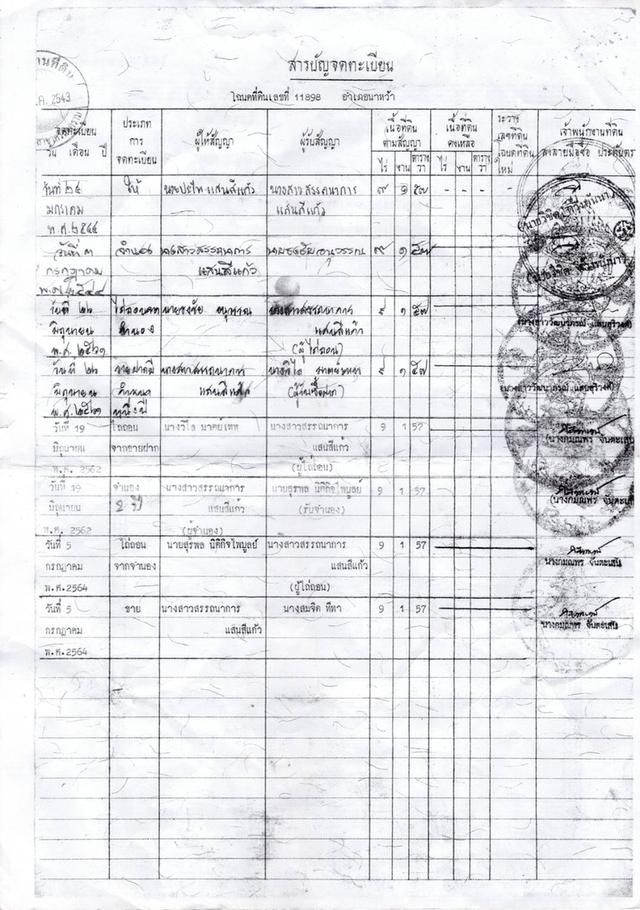 สารบัญจดทะเบียน
โฉนดที่ดินเลขที่ 11898 อำเภอนาหว้า
จดทะเบียน
วัน เดือน ปี
ประเภท
การ
จดทะเบียน
ผู้ให้สัญญา
ผู้รับสัญญา
เนื้อที่ดิน
ตามสัญญา
ไร่ งาน ตารางวา
เนื้อที่ดิน
คงเหลือ
ไร่ งาน ตารางวา
ระวาง
เลขที่ดิน
โฉนดที่ดิน
ใหม่
เจ้าพนักงานที่ดิน
ลงลายมือชื่อ ประทับตรา
วันที่ ๒๔ ให้ นางสาวสรรถนาการ ๙ ๑ ๕๗ - - - -
มกราคม แสนสีแก้ว
พ.ศ. ๒๕๔๔
วันที่ ๓ จำนอง นางสาวสรรถนาการ ๙ ๑ ๕๗
กรกฎาคม แสนสีแก้ว
วันที่ ๒๒ ไถ่ถอนจาก นางสาวสรรถนาการ ๙ ๑ ๕๗
มิถุนายน จำนอง แสนสีแก้ว
พ.ศ. ๒๕๖๑ (ผู้ไถ่ถอน)
วันที่ ๒๒ ขายฝากมี นางสาวสรรถนาการ นางวิไล ๙ ๑ ๕๗
มิถุนายน กำหนด แสนสีแก้ว
พ.ศ. ๒๕๖๑ หนึ่งปี
(นางสาววัฒนาภรณ์ แสบสุริวงค์)
วันที่ 19 ไถ่ถอน นางวิไล มาตย์เทพ นางสาวสรรถนาการ 9 1 57
มิถุนายน จากขายฝาก แสนสีแก้ว
พ.ศ. 2562 (ผู้ไถ่ถอน)
(นางกมณพร จันตะเสน)
วันที่ 19 จำนอง นางสาวสรรถนาการ นายสุรพล นิติกิจไพบูลย์ 9 1 57
มิถุนายน ๒ ปี แสนสีแก้ว (รับจำนอง)
พ.ศ. 2562 (ผู้จำนอง)
(นางกมณพร จันตะเสน)
วันที่ 5 ไถ่ถอน นายสุรพล นิติกิจไพบูลย์ นางสาวสรรถนาการ 9 1 57
กรกฎาคม จากจำนอง แสนสีแก้ว
พ.ศ.2564 (ผู้ไถ่ถอน)
นางกมณพร จันตะเสน
วันที่ 5 ขาย นางสาวสรรถนาการ นางสมจิต ทีตา 9 1 57
กรกฎาคม แสนสีแก้ว
พ.ศ.2564
(นางกมณพร จันตะเสน)